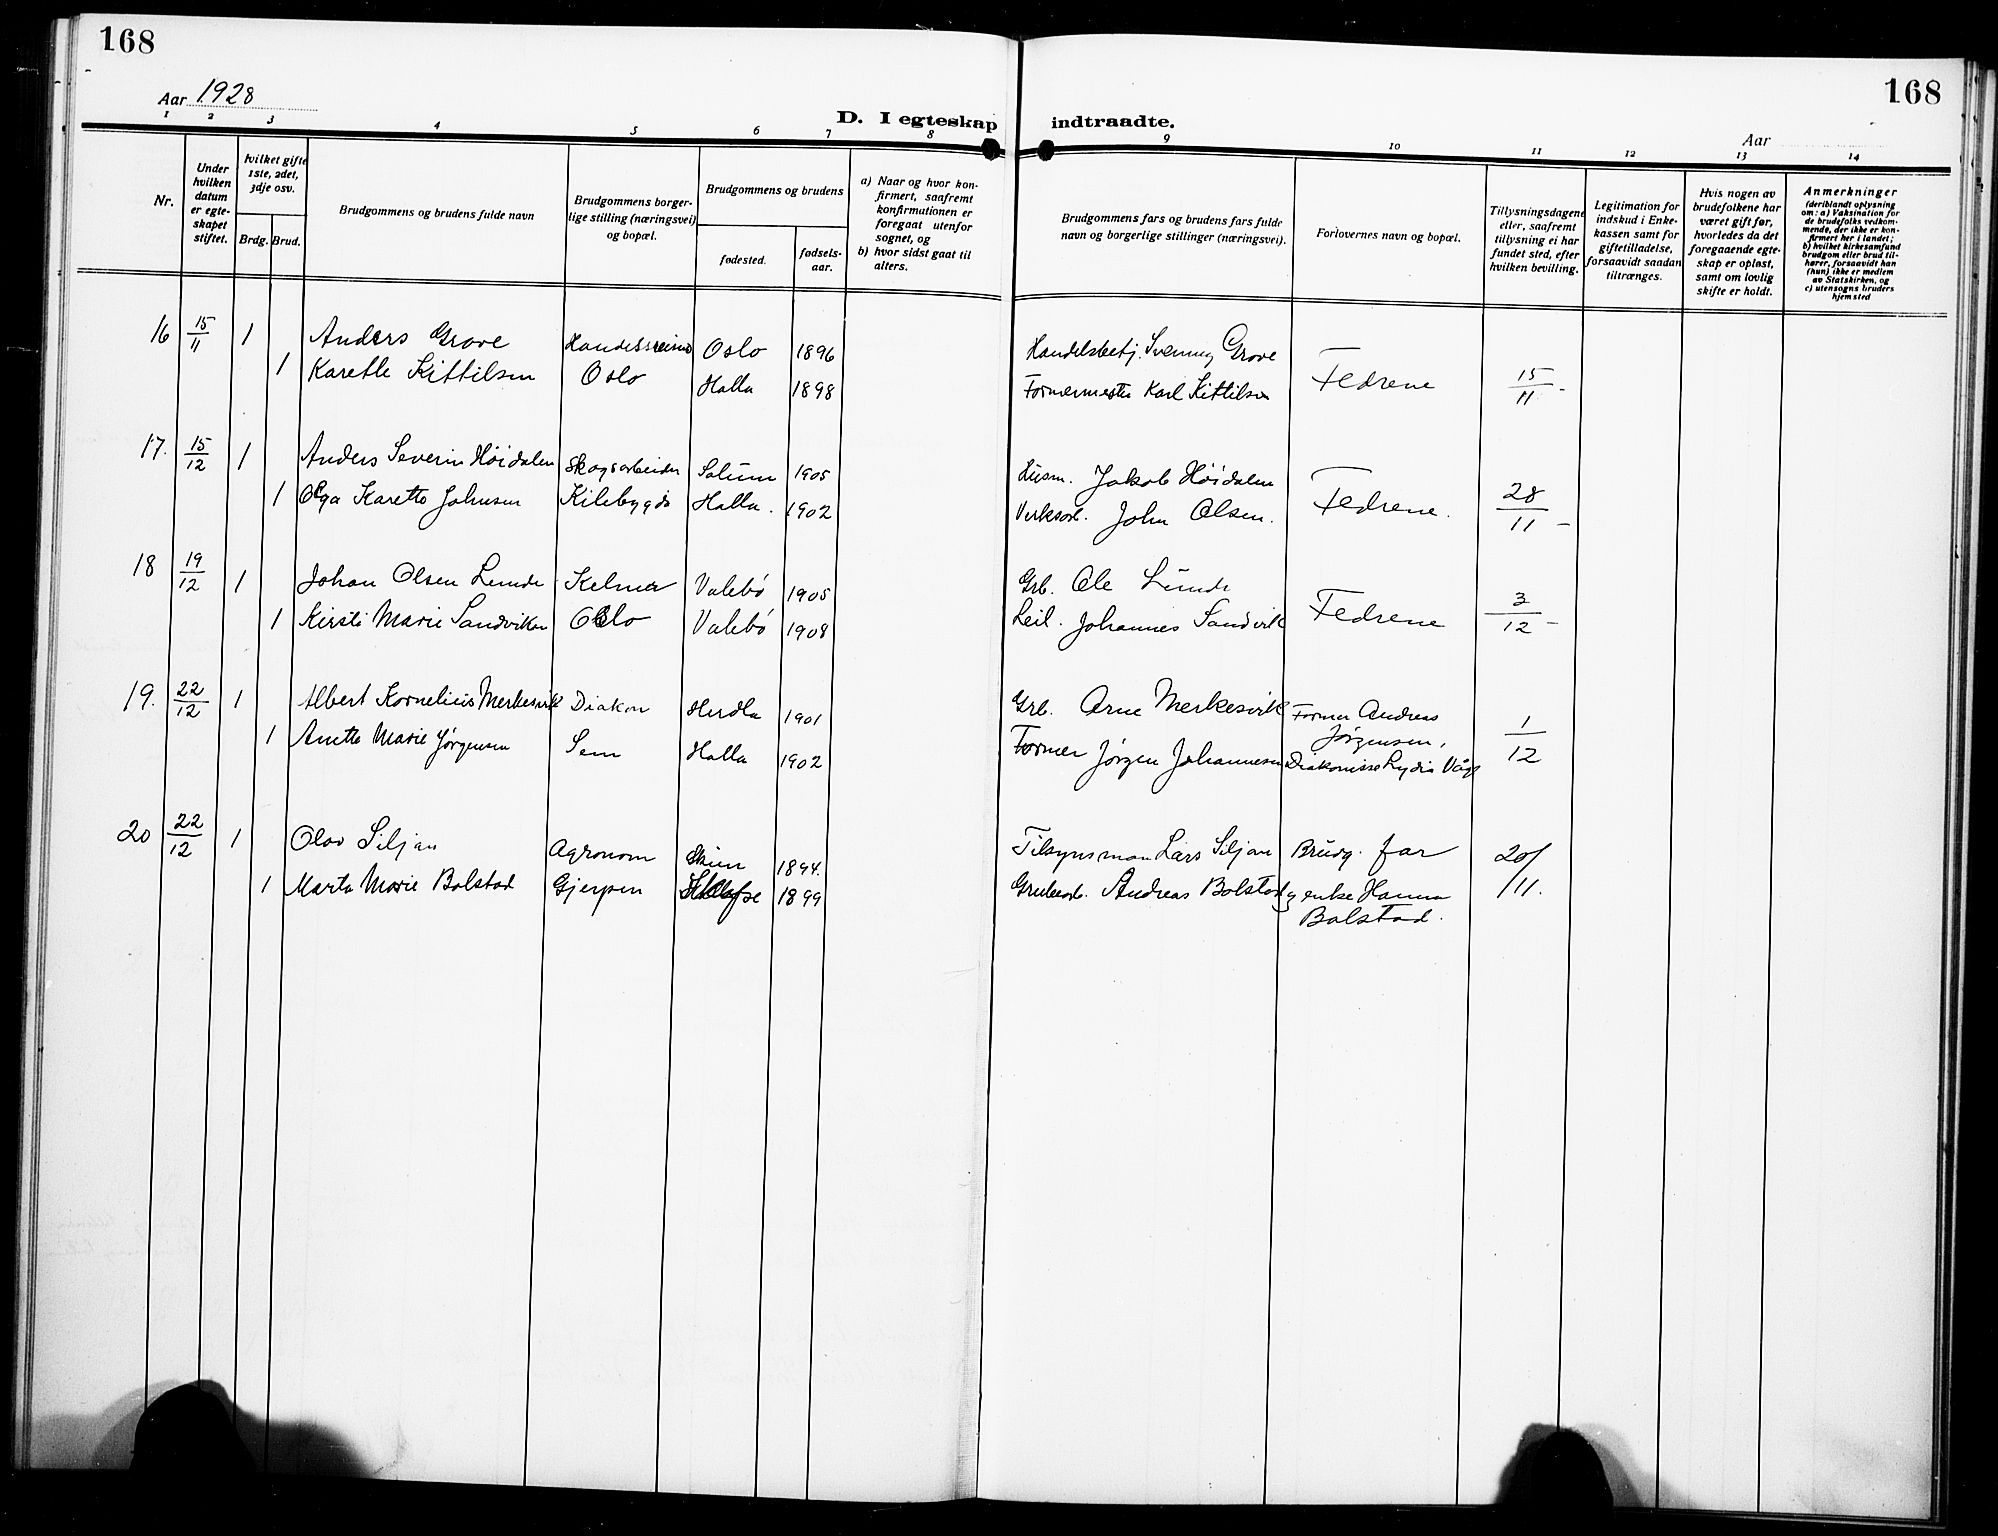 168
168
Aar 1928
D. I egteskap indtraadte.
Aar
1 2 3 4 5 6 7 8 9 10 11 12 13 14
Nr.
Under
hvilken
datum
er egte-
skapet
stiftet.
hvilket gifte
1ste, 2det,
3dje osv.
Brdg. Brud.
Brudgommens og brudens fulde navn
Brudgommens borger-
lige stilling (næringsvei)
og bopæl.
Brudgommens og brudens
fødested.
fødsels-
aar.
a) Naar og hvor kon-
firmert, saafremt
konfirmationen er
foregaat utenfor
sognet, og
b) hvor sidst gaat til
alters.
Brudgommens fars og brudens fars fulde
navn og borgerlige stillinger (næringsvei).
Forlovernes navn og bopæl.
Tillysningsdagene
eller, saafremt
tillysning ei har
fundet sted, efter
hvilken bevilling.
Legitimation for
indskud i Enke-
kassen samt for
giftetilladelse,
forsaavidt saadan
tiltrænges.
Hvis nogen av
brudefolkene har
været gift før,
hvorledes da det
foregaaende egte-
skap er opløst,
samt om lovlig
skifte er holdt.
Anmerkninger
(deriblandt oplysning
om: a) Vaksination for
de brudefolks vedkom-
mende, der ikke er kon-
firmert her i landet;
b) hvilket kirkesamfund
brudgom eller brud til-
hører, forsaavidt han
(hun) ikke er medlem
av Statskirken, og
c) utensogns bruders
hjemsted
16 15/11 1 Anders Grove Handelsreisende Oslo 1896 Handelsbetj. Svenning Grove
1 Karethe Kittilsen Oslo Holla 1898 Formermester Karl Kittilsen Fedrene 15/11 -
17. 15/12 1 Anders Severin Høidalen Skogsarbeider Solum 1905 Husm. Jakob Høidalen
1 Olga Karette Johnsen Kilebygda Holla. 1902 Verksarb. John Olsen. Fedrene. 28/11 -
18 19/12 1 Johan Olsen Lunde Kelner Valebø 1905 Grb. Ole Lunde
1 Kirsti Marie Sandviken Oslo Valebø 1908 Leil. Johannes Sandvik Fedrene 3/12 -
19. 22/12 1 Albert Kornelius Merkesvik Diakon Herdla 1901 Grb. Arne Merkesvik Former Andreas
Jørgensen,
1 Anette Marie Jørgensen Sem Holla 1902 Former Jørgen Johannesen Diakonisse Lydia Våge 1/12
20 22/12 1 Olav Siljan Agronom Skien 1894. Tilsynsman Lars Siljan Brudg. far 20/11.
1 Marta Marie Bolstad Gjerpen 1899 Grubearb. Andreas Bolstad og enke Hanna
Bolstad.